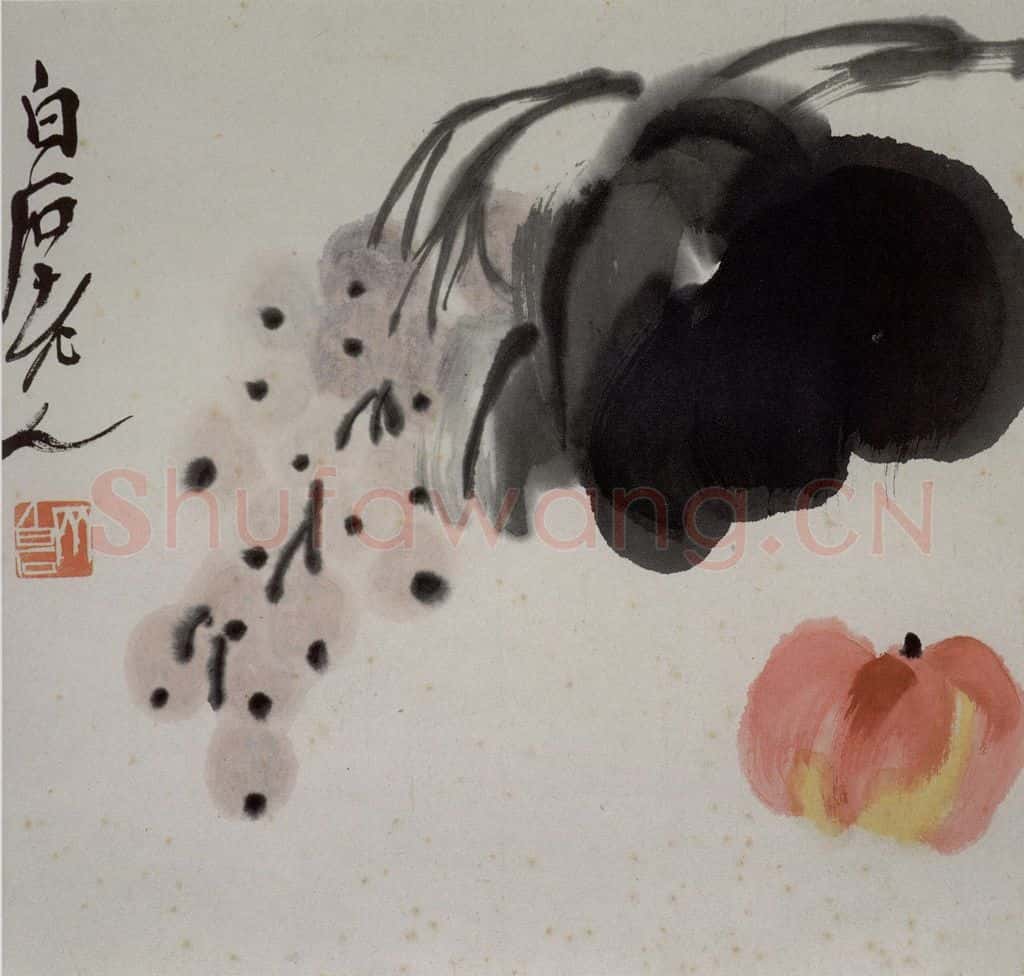 白石老人
Shufawang.CN